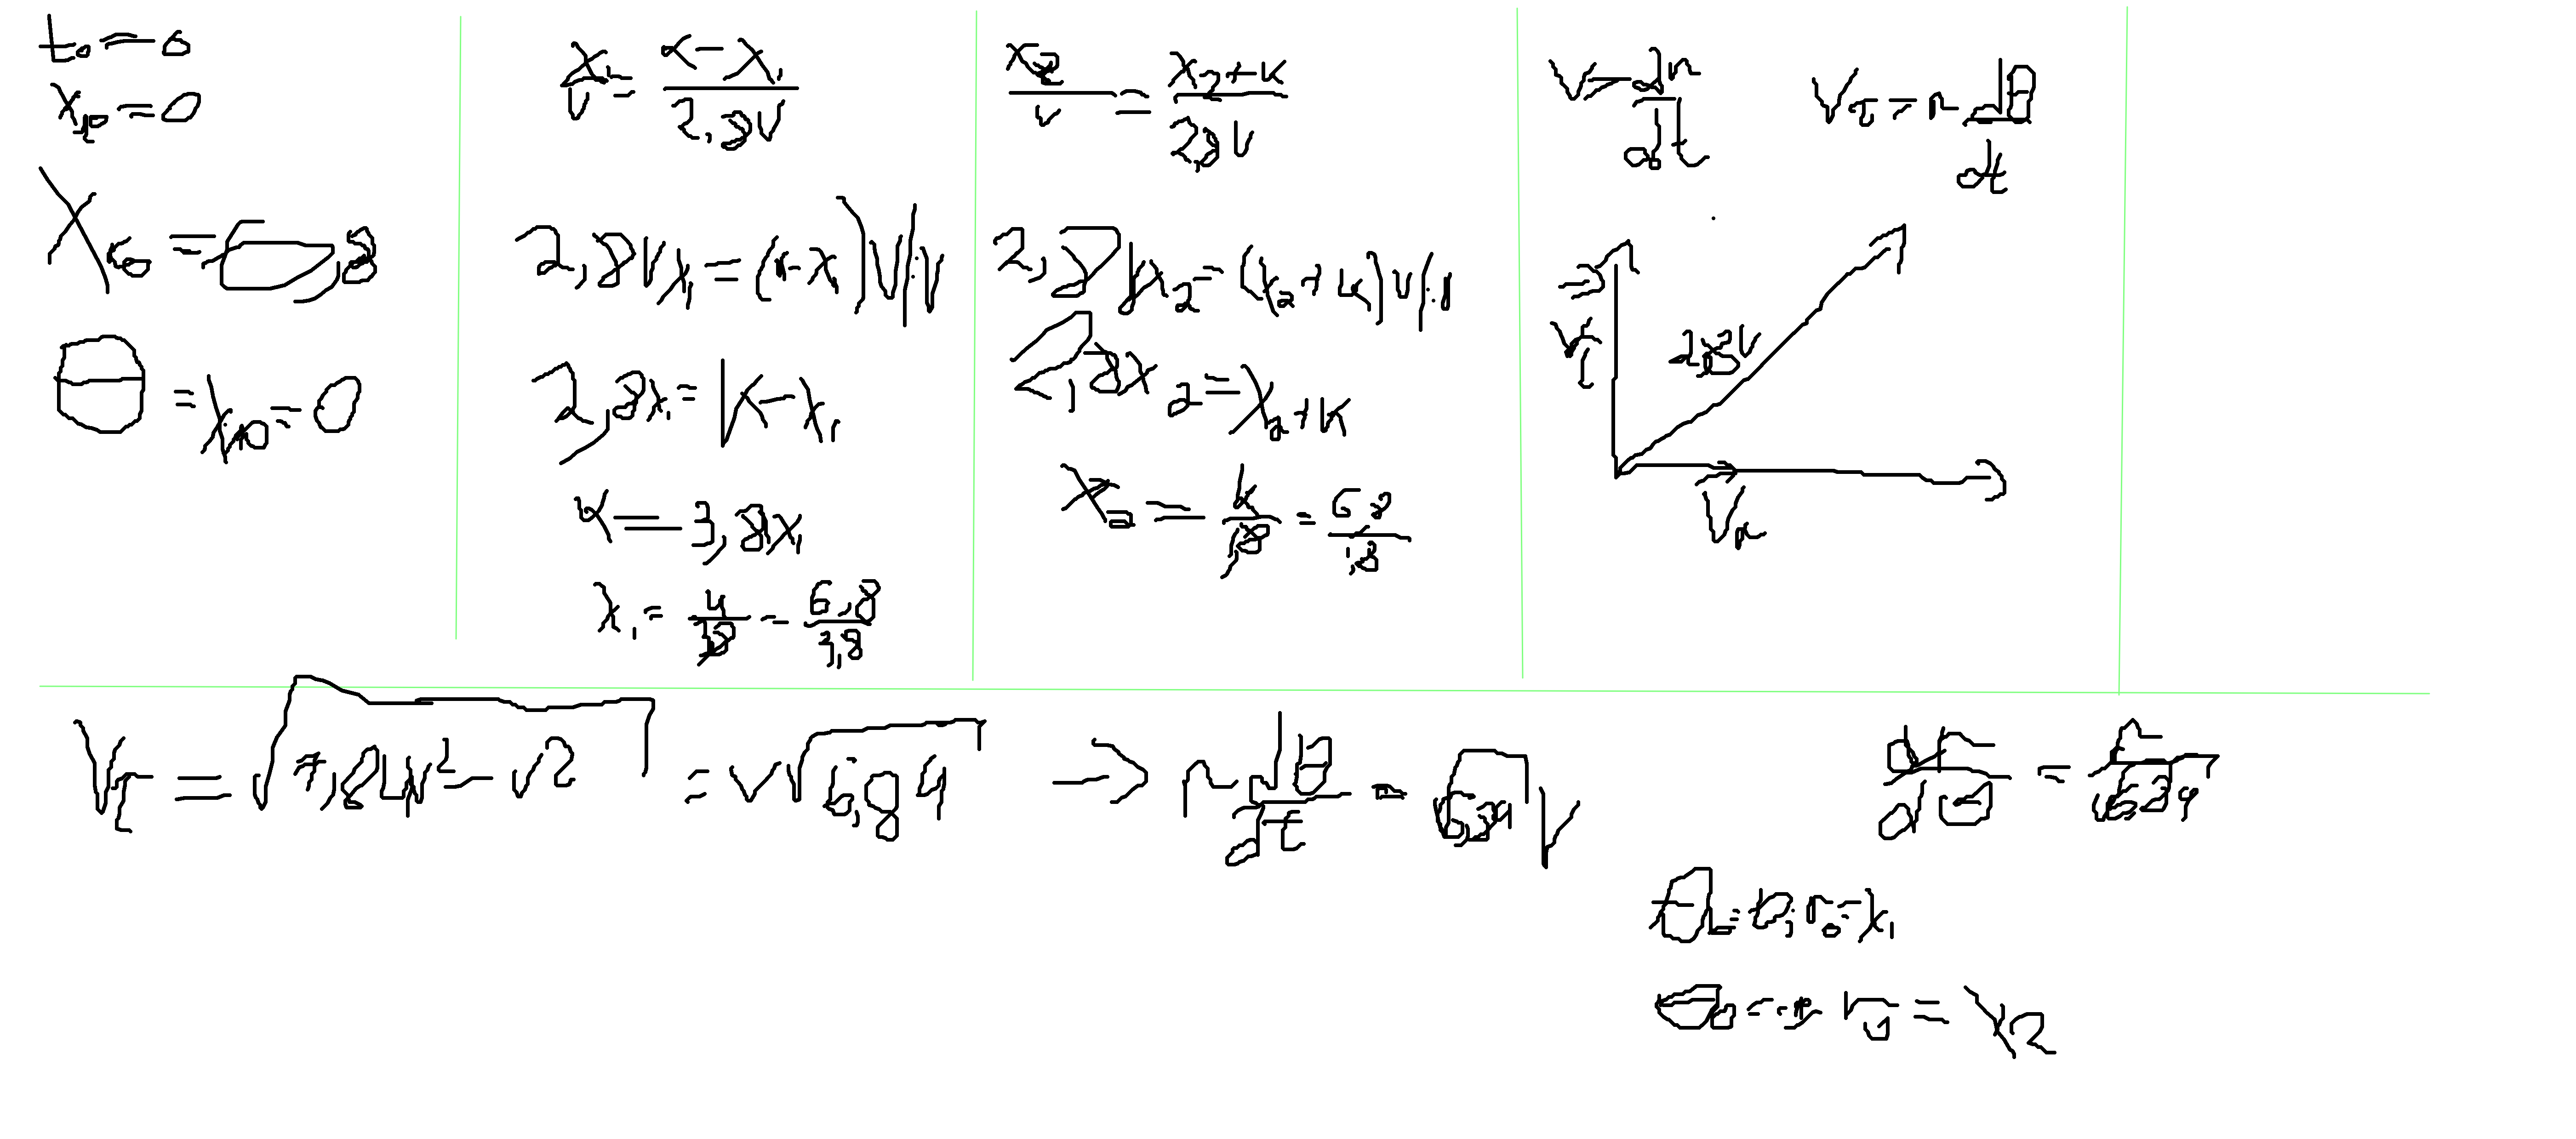 t₀ = 0
x₁₀ = 0
X_k₀ = 6,8
θ = x₁₀ = 0
x₁/v = (k - x₁)/(2,8v)
2,8vx₁ = (k - x₁)v | :v
2,8x₁ = k - x₁
k = 3,8x₁
x₁ = k/3,8 = 6,8/3,8
x₂/v = (x₂ + k)/(2,8v)
2,8vx₂ = (x₂ + k)v | :v
2,8x₂ = x₂ + k
x₂ = k/1,8 = 6,8/1,8
V = dr/dt
V_τ = r dθ/dt
V_τ
2,8V
V_r
V_τ = √(7,84v² - v²) = v√6,84 → r dθ/dt = √6,84 v
dr/dθ = r/√6,84
θ₀ = 0; r₀ = x₁
r₀ = x₂